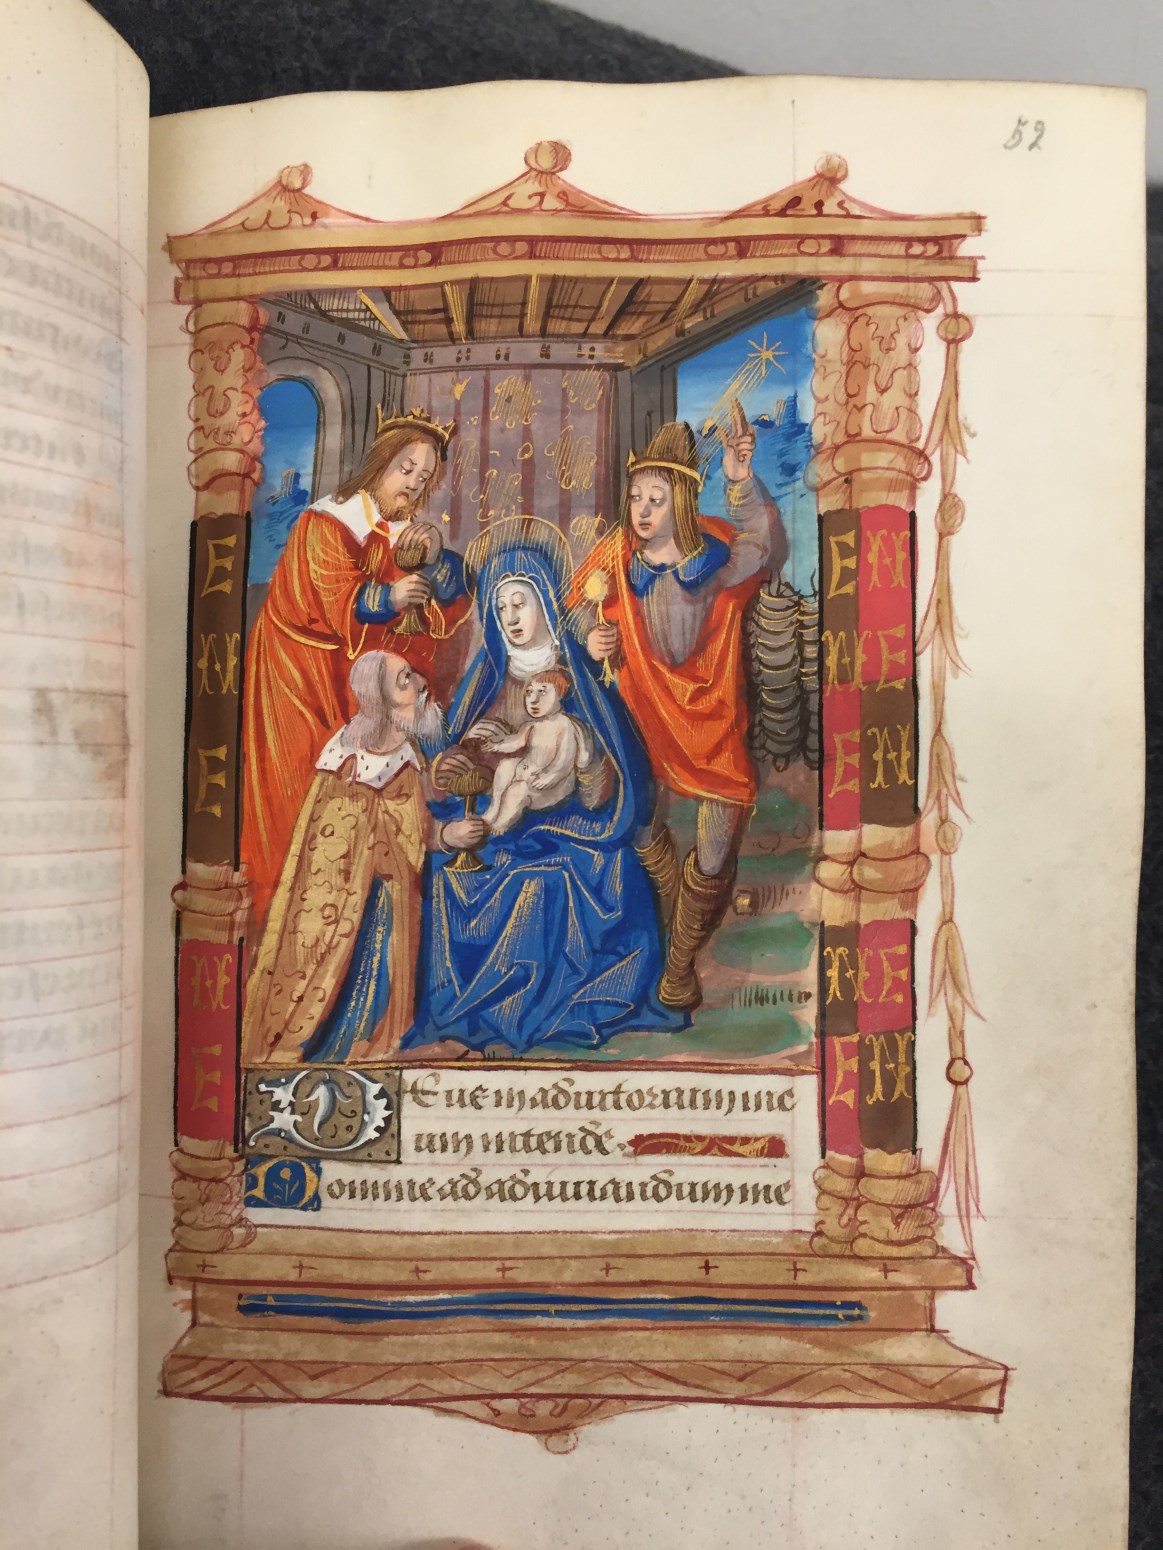 52
E
N
E
N
E
E N
N E
E N
N E
E N
Deus in adiutorium me
um intende.
Domine ad adiuuandum me